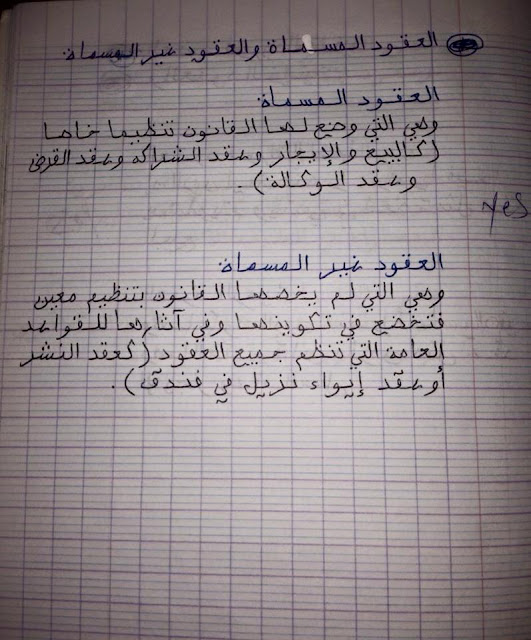 العقود المسماة والعقود غير المسماة
العقود المسماة
وهي التي وضع لها القانون تنظيما خاصا
(كالبيع والإيجار وعقد الشراكة وعقد القرض
وعقد الوكالة).
yes
العقود غير المسماة
وهي التي لم يخصها القانون بتنظيم معين
فتخضع في تكوينها وفي آثارها للقواعد
العامة التي تنظم جميع العقود (كعقد النشر
أوعقد إيواء نزيل في فندق).